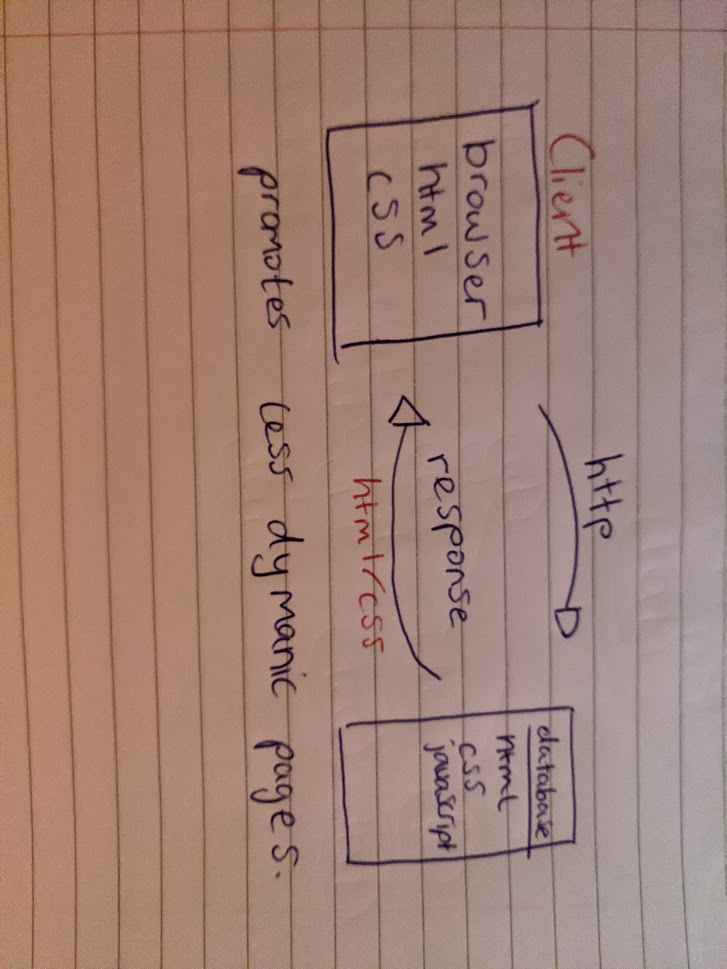 Client
http
browser
html
css
response
html/css
database
html
css
javascript
promotes less dymanic pages.